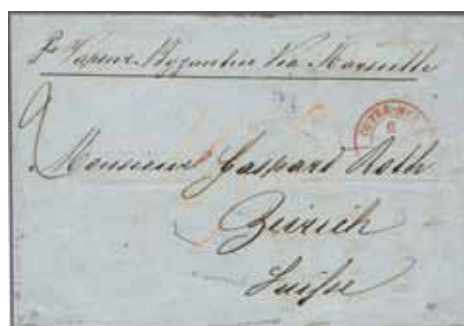 Pr Vapeur Byzantin Via Marseille
9
Monsieur Gaspard Roth
Zürich
Suisse